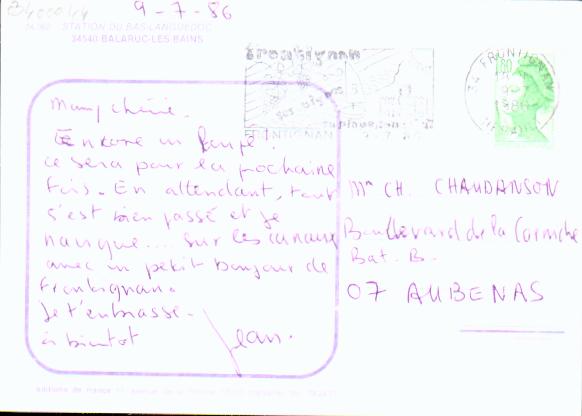 9-7-86
STATION DU BAS-LANGUEDOC
34540 BALARUC-LES-BAINS
Frontignan
FRONTIGNAN
34 FRONTIGNAN
Mamy chérie.
Encore un loupé!
ce sera pour la prochaine
fois. En attendant, tout
s'est bien passé et je
navigue.... sur les canaux
avec un petit bonjour de
Frontignan.
Je t'embrasse.
à bientôt
Jean.
Mme CH. CHAUDANSON
Boulevard de la Corniche
Bat. B.
07 AUBENAS